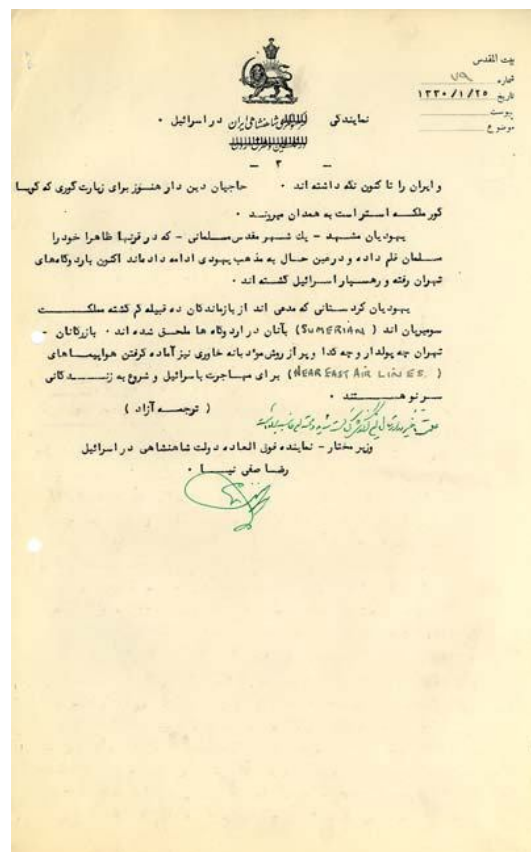 بیت المقدس
شماره ۷۹
تاریخ ۱۳۳۰/۱/۲۵
پیوست
موضوع
نمایندگی شاهنشاهی ایران در اسرائیل ۰
- ۳ -
و ایران را تا کنون نگه داشته اند ۰ حاجیان دین دار هنوز برای زیارت گوری که گویا
گور ملکه استر است به همدان میروند ۰
یهودیان مشهد - یك شهر مقدس مسلمانی - که در قرنها ظاهرا خود را
مسلمان قلم داده و درعین حال به مذهب یهودی ادامه داده‌اند اکنون باردوگاههای
تهران رفته و رهسپار اسرائیل گشته اند ۰
یهودیان کردستانی که مدعی اند از بازماندگان ده قبیله گم گشته مملکت
سومریان اند ( SUMERIAN ) بآنان در اردوگاه ها ملحق شده اند ۰ بازرگانان -
تهران چه پولدار و چه گدا و پر از روش مؤدبانه خاوری نیز آماده گرفتن هواپیماهای
( NEAR EAST AIR LINES ) برای مهاجرت باسرائیل و شروع به زندگانی
سر نو هستند ۰
( ترجمه آزاد )
وزیر مختار - نماینده فوق العاده دولت شاهنشاهی در اسرائیل
رضا صفی نیا ۰